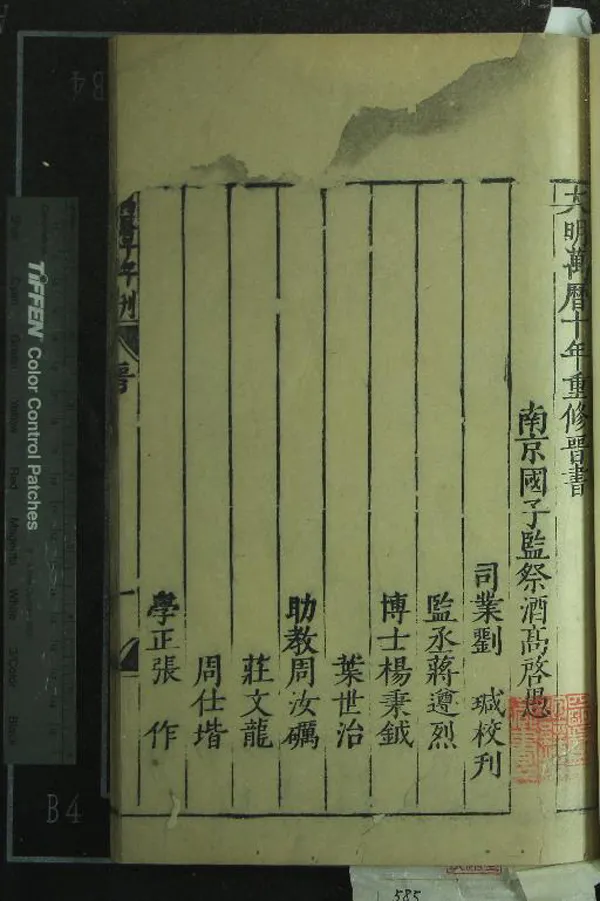 大明萬曆十年重修晉書
南京國子監祭酒高啓愚
司業劉 瑊校刋
監丞蔣遵烈
博士楊秉鉞
葉世治
助教周汝礪
莊文龍
周仕堦
學正張 作
年刊
一
TIFFEN Color Control Patches
B4
B4
585